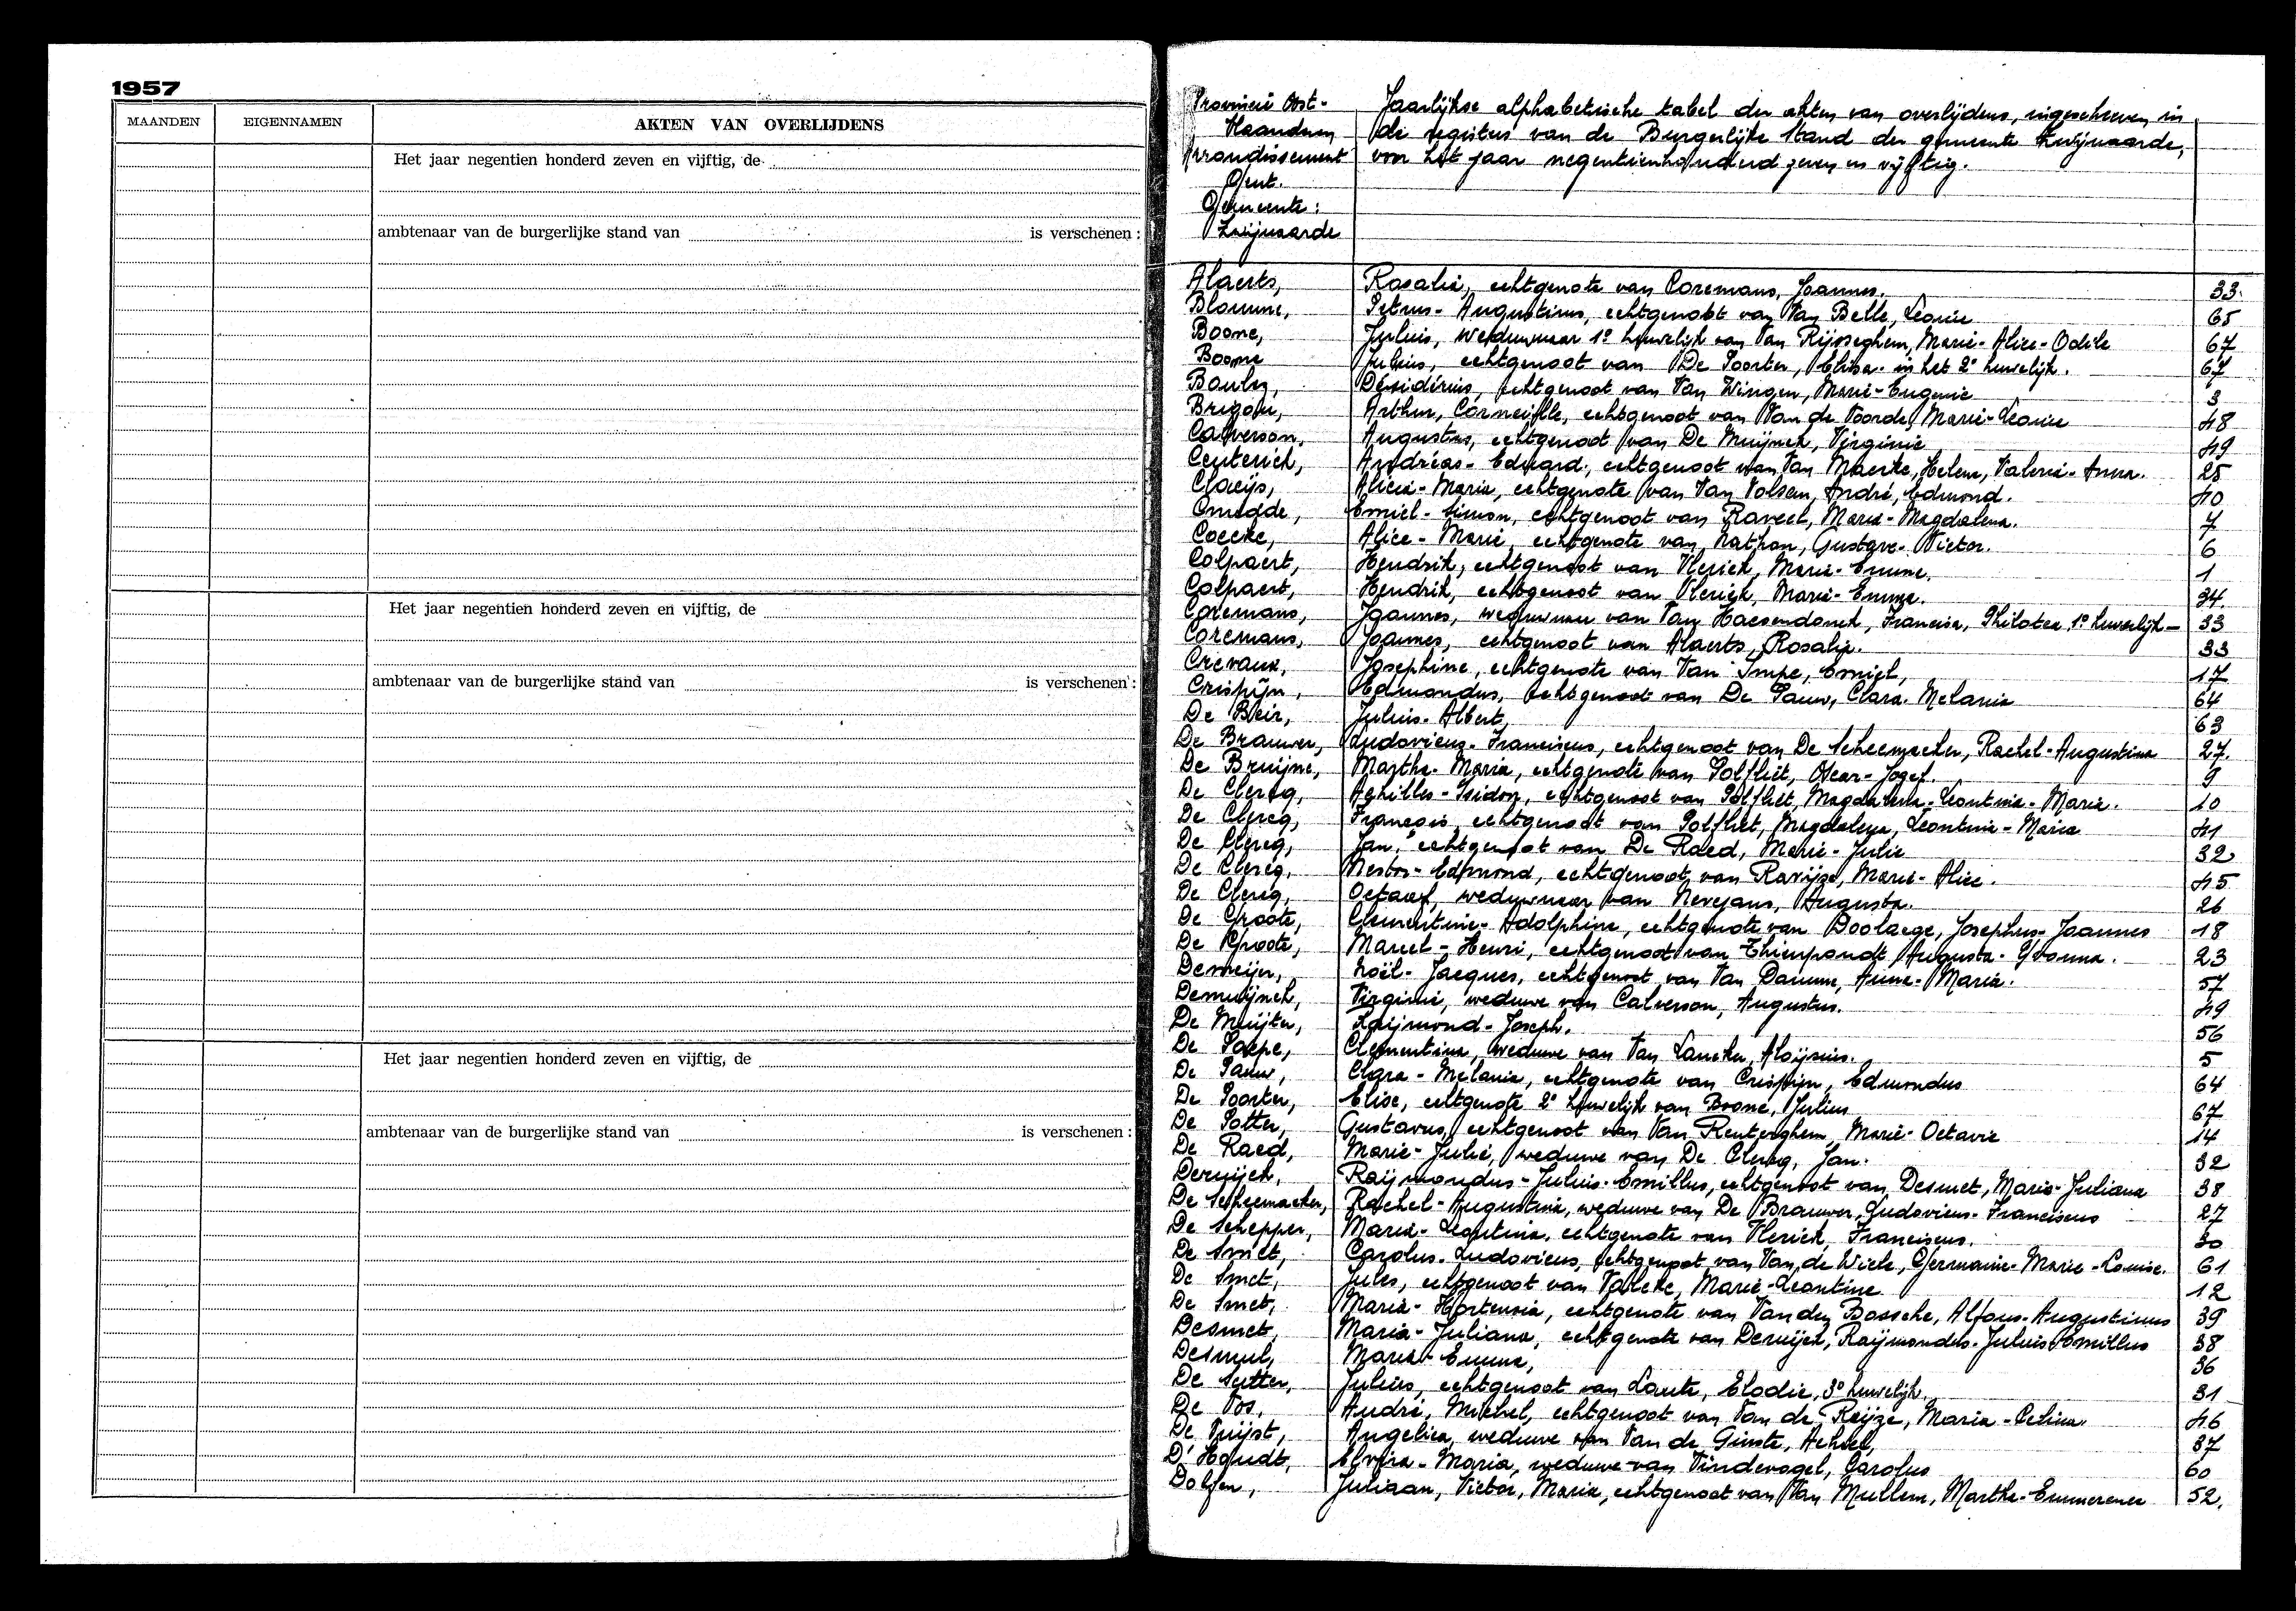 1957
MAANDEN EIGENNAMEN AKTEN VAN OVERLIJDENS
Het jaar negentien honderd zeven en vijftig, de
ambtenaar van de burgerlijke stand van is verschenen :
Het jaar negentien honderd zeven en vijftig, de
ambtenaar van de burgerlijke stand van is verschenen :
Het jaar negentien honderd zeven en vijftig, de
ambtenaar van de burgerlijke stand van is verschenen :
Provincie Oost-
Vlaanderen
Arrondissement
Gent.
Gemeente :
Zwijnaarde
Jaarlijkse alphabetische tabel der akten van overlijdens, ingeschreven in
de registers van de Burgerlijke Stand der gemeente Zwijnaarde,
voor het jaar negentienhonderd zeven en vijftig.
Alaerts, Rosalie, echtgenote van Coremans, Joannes. 33.
Blomme, Petrus-Augustinus, echtgenoot van Van Belle, Leonie 65
Boone, Julius, weduwnaar 1° huwelijk van Van Rijsseghem, Marie-Alice-Odile 67
Boone Julius, echtgenoot van De Poorter, Elisa. in het 2° huwelijk. 67
Désidérius, echtgenoot van Van Wingen, Marie-Eugenie 3
Arthur, Corneille, echtgenoot van Van de Voorde, Marie-Leonie 48
Calverson, Augustus, echtgenoot van De Muijnck, Virginie 49
Ceuterick, Andréas-Eduard, echtgenoot van Van Maercke, Helena, Valerie-Anna. 25
Claeijs, Alicia-Maria, echtgenote van Van Volsem, André, Edmond. 40
Cnudde, Emiel-Simon, echtgenoot van Raveel, Marie-Magdalena. 7
Coecke, Alice-Marie, echtgenote van Nathan, Gustave-Victor. 6
Colpaert, Hendrik, echtgenoot van Vlerick, Marie-Emma. 1
Colpaert, Hendrik, echtgenoot van Vlerick, Marie-Emma. 34.
Coremans, Joannes, weduwnaar van Van Haesendonck, Francisca, Philotea 1° huwelijk- 33
Coremans, Joannes, echtgenoot van Alaerts, Rosalie. 33
Crevaux, Josephine, echtgenote van Van Impe, Emiel, 17
Crispijn, Edmondus, echtgenoot van De Pauw, Clara. Melanie 64
De Beir, Julius-Albert, 63
De Brauwer, Ludovicus-Franciscus, echtgenoot van De Scheemaeker, Rachel-Augustina 27.
De Bruijne, Martha-Maria, echtgenote van Polfliet, Oscar-Jozef. 9
De Clercq, Achilles-Isidor, echtgenoot van Polfliet, Magdalena-Leontine-Marie. 10
De Clercq, François, echtgenoot van Polfliet, Magdalena, Leontine-Maria 41
De Clercq, Jan, echtgenoot van De Raed, Marie-Julie 32
De Clercq, Nestor-Edmond, echtgenoot van Ravijze, Marie-Alice. 45
De Clercq, Octaaf, weduwnaar van Nevejans, Augusta. 26
De Groote, Clementine-Adolphine, echtgenote van Boolaege, Josephus-Joannes 18
De Groote, Marcel-Henri, echtgenoot van Thienpondt Augusta-Yvonna. 23
Demeijer, Noël-Jacques, echtgenoot van Van Damme, Anne-Maria. 57
Demuijnck, Virginie, weduwe van Calverson, Augustus. 49
De Muijter, Raijmond-Joseph. 56
De Paepe, Clementina, weduwe van Van Lancker, Aloijsius. 5
De Pauw, Clara-Melanie, echtgenote van Crispijn, Edmondus 64
De Poorter, Elise, echtgenote 2° huwelijk van Boone, Julius 67
De Potter, Gustavus, echtgenoot van Van Renterghem, Marie-Octavie 14
De Raed, Marie-Julie, weduwe van De Clercq, Jan. 32
Deruijck, Raijmondus-Julius-Emillus, echtgenoot van Desmet, Maria-Juliana 38
De Scheemaeker, Rachel-Augustina, weduwe van De Brauwer, Ludovicus-Franciscus 27
De Schepper, Maria-Leontina, echtgenote van Vlerick, Franciscus. 30
De Smet, Carolus-Ludovicus, echtgenoot van Van de Wiele, Germanie-Marie-Louise. 61
De Smet, Jules, echtgenoot van Valcke, Marie-Leontine 12
De Smet, Maria-Hortensia, echtgenote van Vanden Bossche, Alfons-Augustinus 39
Desmet, Maria-Juliana, echtgenote van Deruijck, Raijmondus-Julius Emillus 38
Desmul, Maria-Emma, 36
De Sutter, Julius, echtgenoot van Laute, Elodie, 3° huwelijk. 31
De Vos, André, Michel, echtgenoot van Van de Reijze, Maria-Celina 46
De Vuijst, Angelica, weduwe van Van de Ginste, Achiel, 37
D'Hondt, Elvira-Maria, weduwe van Vindevogel, Carolus 60
Dolfen, Juliaan, Victor, Maria, echtgenoot van Van Mullem, Martha-Emmerence 52.